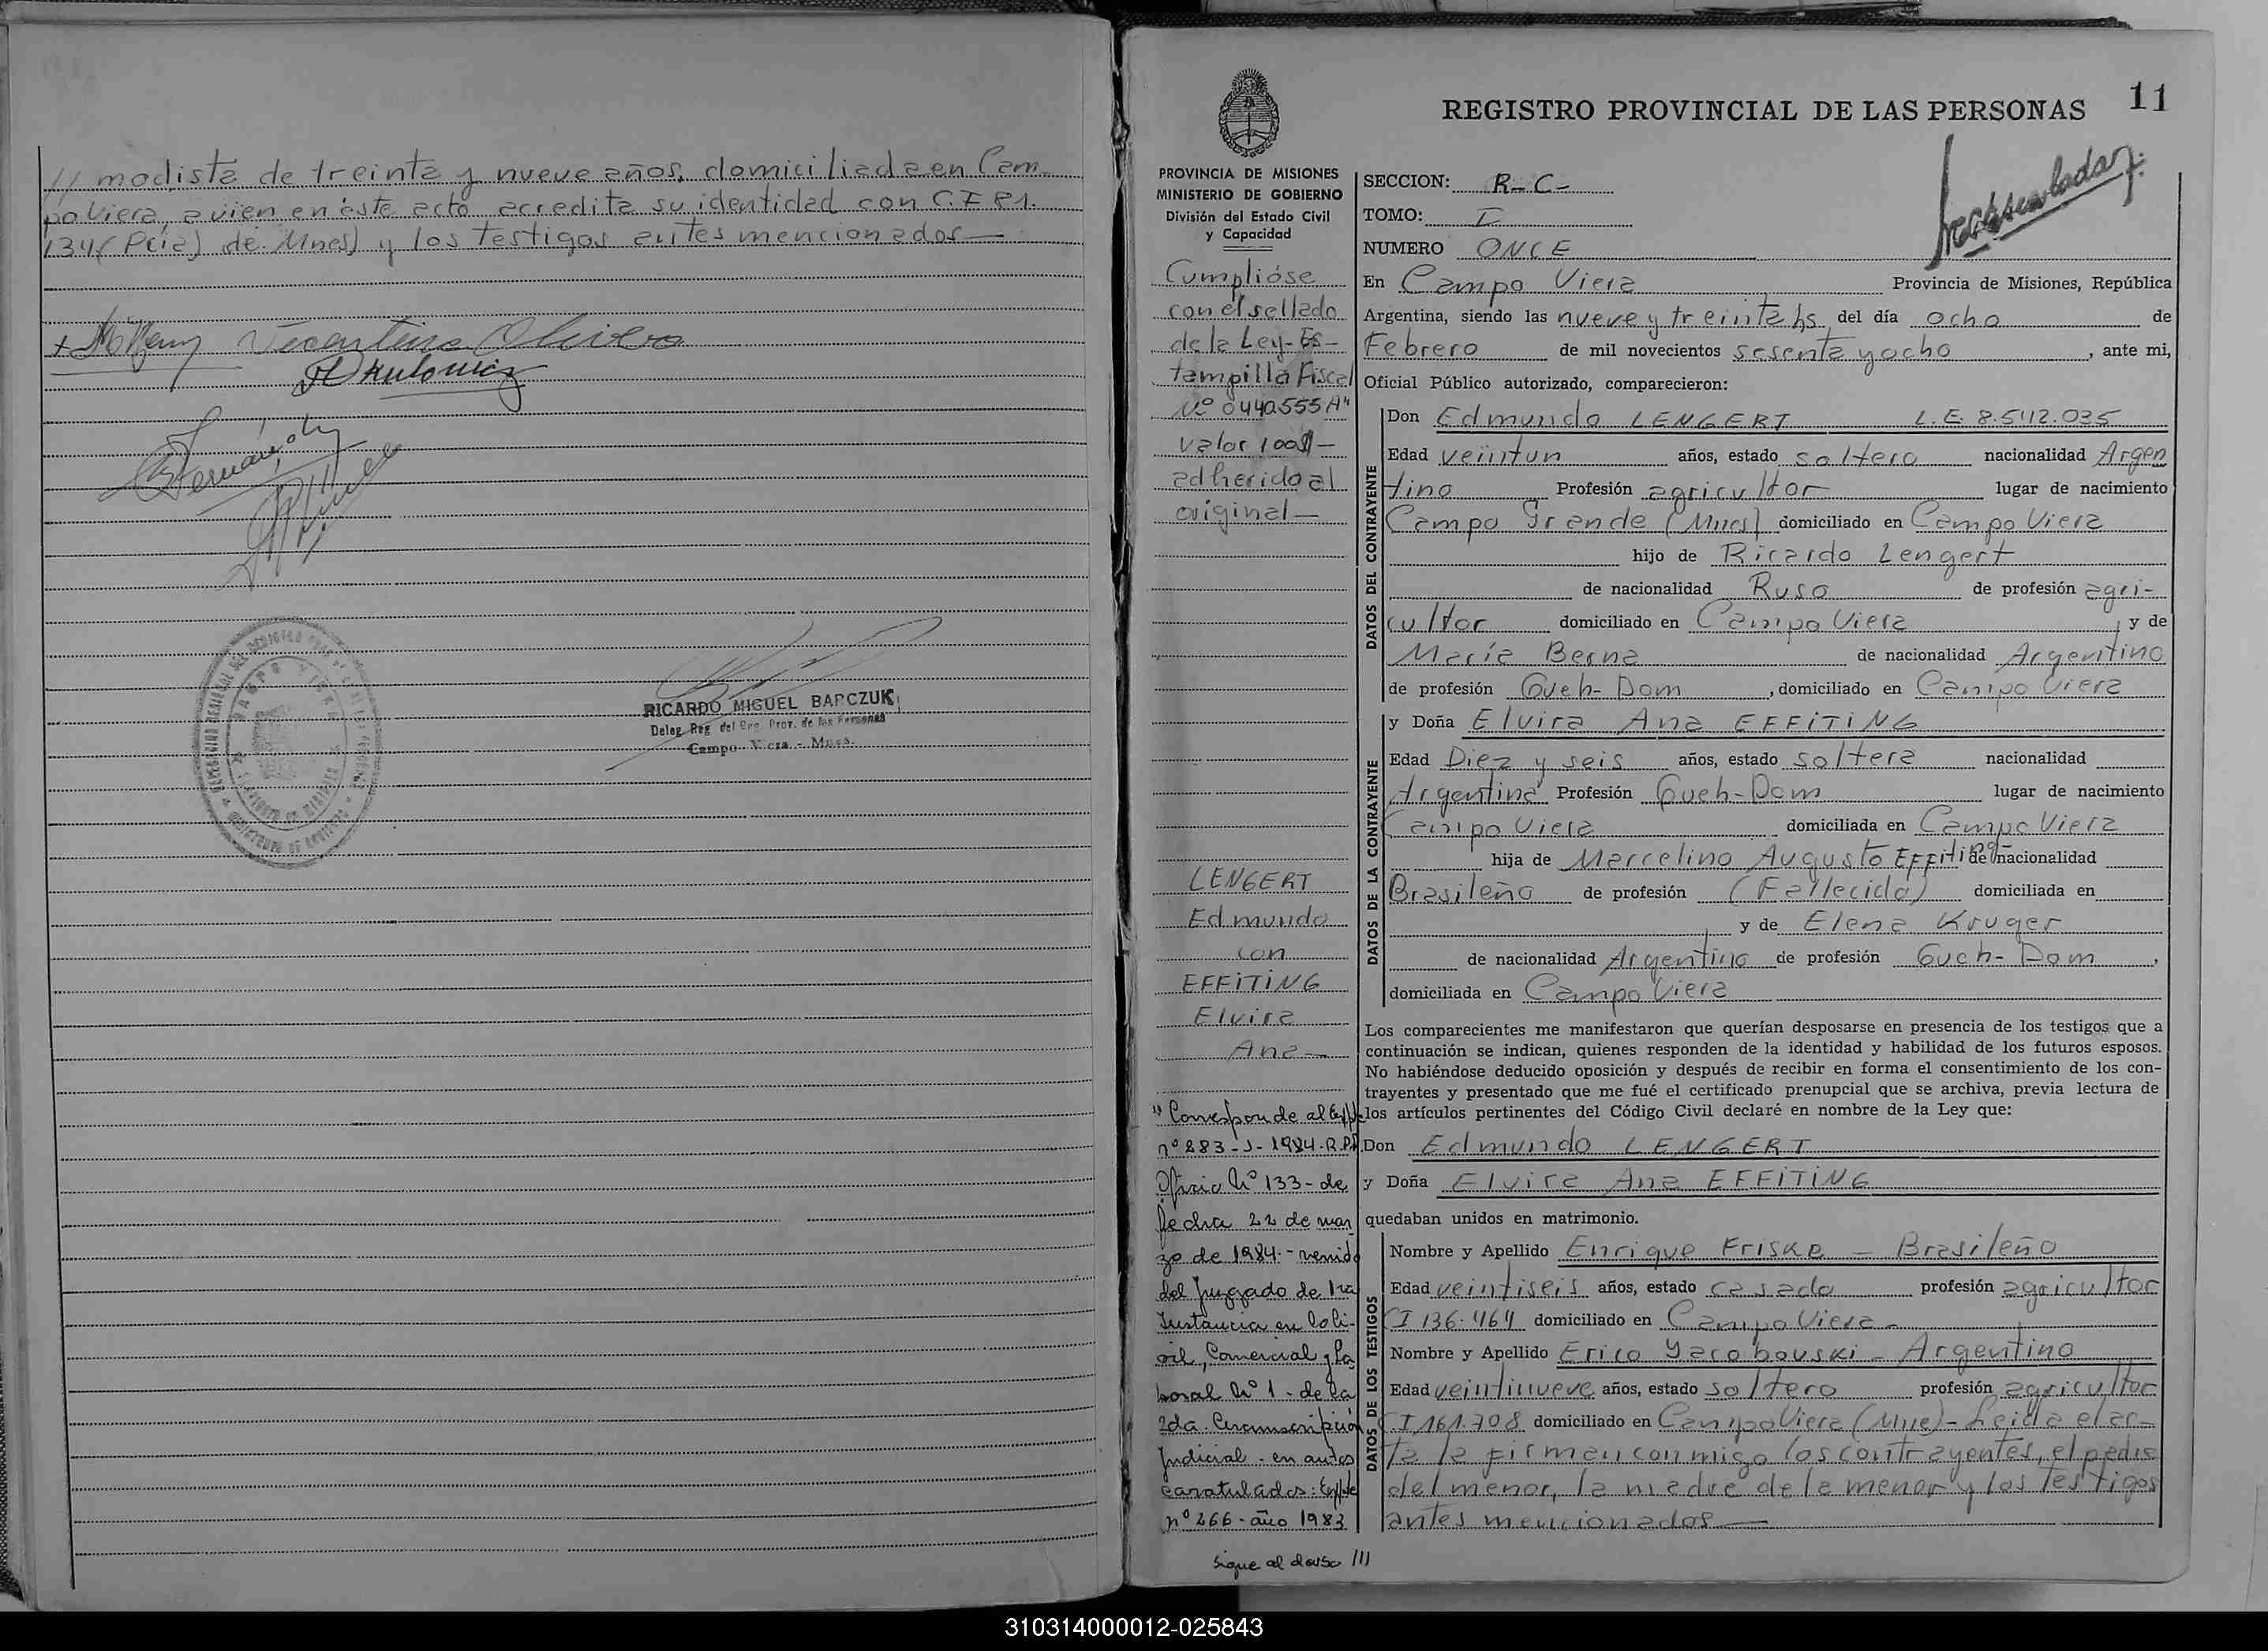 // modista de treinta y nueve años, domiciliada en Cam
po Viera, quien en éste acto acredita su identidad con C.I 81.
134 (Pcia) de Mnes) y los testigos antes mencionados —
Vicentina Olivera
RICARDO MIGUEL BARCZUK
Deleg. Reg. del Reg. Prov. de las Personas
Campo Viera - Mnes.
11
REGISTRO PROVINCIAL DE LAS PERSONAS
PROVINCIA DE MISIONES
MINISTERIO DE GOBIERNO
División del Estado Civil
y Capacidad
Cumplióse
con el sellado
de la Ley-Es-
tampilla Fiscal
Nº 0440555 A"
valor 100$ —
adherido al
original —
LENGERT
Edmundo
con
EFFiTiNG
Elvira
Ana —
" Corresponde al Expte
nº 283-J-1984-R.P.P.
Oficio Nº 133 - de
fecha 22 de mar
zo de 1984.- venido
del Juzgado de 1ra
Instancia en lo Ci-
vil, Comercial y La
boral Nº 1 - de la
2da Circunscripción
Judicial - en autos
caratulados: Expte
nº 266 - año 1983
Sigue al dorso ///
SECCION: R-C-
TOMO: I
NUMERO ONCE
En Campo Viera Provincia de Misiones, República
Argentina, siendo las nueve y treinta hs del día ocho de
Febrero de mil novecientos sesenta y ocho, ante mi,
Oficial Público autorizado, comparecieron:
DATOS DEL CONTRAYENTE
Don Edmundo LENGERT L.E. 8.542.035
Edad veintiun años, estado soltero nacionalidad Argen
tino Profesión agricultor lugar de nacimiento
Campo Grande (Mnes) domiciliado en Campo Viera
hijo de Ricardo Lengert
de nacionalidad Ruso de profesión agri-
cultor domiciliado en Campo Viera y de
María Berna de nacionalidad Argentino
de profesión Queh-Dom, domiciliado en Campo Viera
DATOS DE LA CONTRAYENTE
y Doña Elvira Ana EFFiTiNG
Edad Diez y seis años, estado soltera nacionalidad
Argentina Profesión Queh-Dom lugar de nacimiento
Campo Viera domiciliada en Campo Viera
hija de Marcelino Augusto EFFiting de nacionalidad
Brasileño de profesión (Fallecido) domiciliada en
y de Elena Kruger
de nacionalidad Argentina de profesión Queh-Dom,
domiciliada en Campo Viera
Los comparecientes me manifestaron que querían desposarse en presencia de los testigos que a
continuación se indican, quienes responden de la identidad y habilidad de los futuros esposos.
No habiéndose deducido oposición y después de recibir en forma el consentimiento de los con-
trayentes y presentado que me fué el certificado prenupcial que se archiva, previa lectura de
los artículos pertinentes del Código Civil declaré en nombre de la Ley que:
Don Edmundo LENGERT
y Doña Elvira Ana EFFiTiNG
quedaban unidos en matrimonio.
DATOS DE LOS TESTIGOS
Nombre y Apellido Enrique Friske - Brasileño
Edad veintiseis años, estado casado profesión agricultor
CI 136.464 domiciliado en Campo Viera -
Nombre y Apellido Erico Yacobouski - Argentino
Edad veintinueve años, estado soltero profesión agricultor
CI 161.708 domiciliado en Campo Viera (Mnes) - Leida el ac-
ta la firman conmigo los contrayentes, el padre
del menor, la madre de la menor y los testigos
antes mencionados —
310314000012-025843